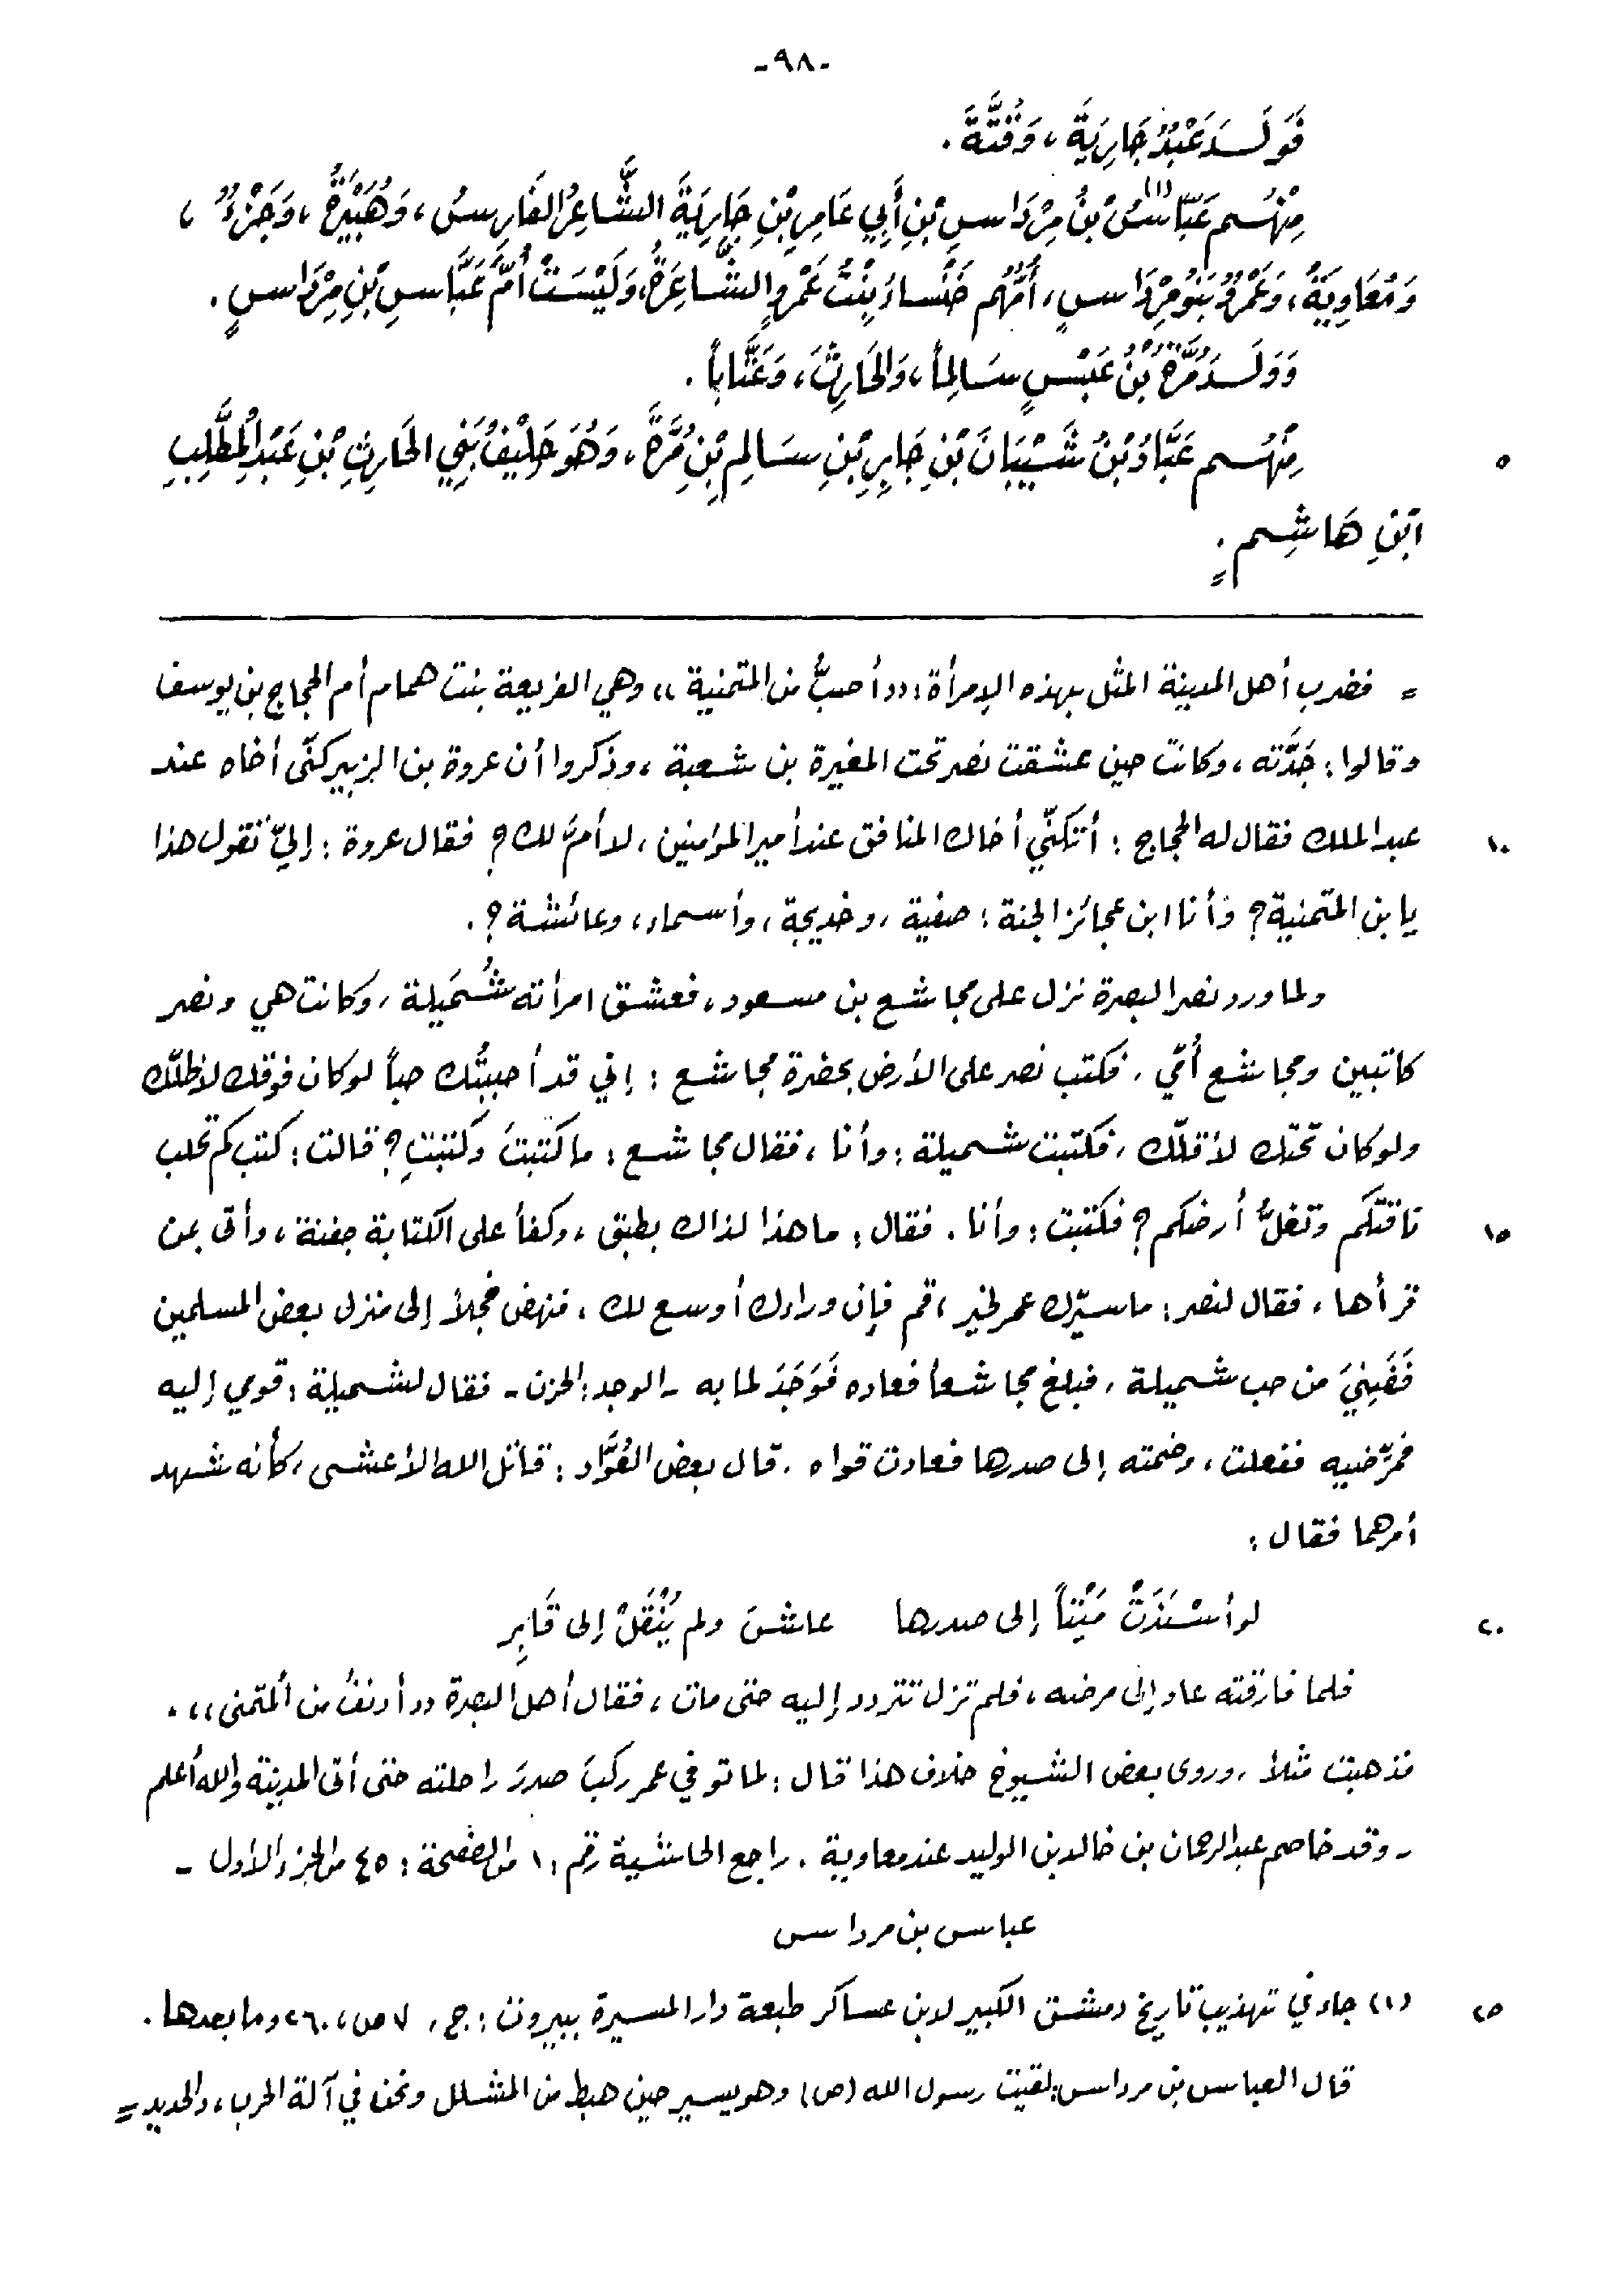 -٩٨-
فَوَلَدَ عَبْدُ جَارِيَةَ، وَقُنَّةَ.
مِنْهُم عَبَّاسُ(١) بْنُ مِرْدَاسِ بْنِ أَبِي عَامِرِ بْنِ جَارِيَةَ الشَّاعِرُ الفَارِسُ، وَهُبَيْرَةُ، وَجَزْءُ،
وَمُعَاوِيَةُ، وَعَمْرُو بَنُو مِرْدَاسٍ، أُمُّهُم خَنْسَاءُ بِنْتُ عَمْرٍو الشَّاعِرَةُ، وَلَيْسَتْ أُمَّ عَبَّاسِ بْنِ مِرْدَاسٍ.
وَوَلَدَ مُرَّةُ بْنُ عَبْسٍ سَالِماً، وَالحَارِثَ، وَعَتَّاباً.
مِنْهُم عَبَّادُ بْنُ شَيْبَانَ بْنِ جَابِرِ بْنِ سَالِمِ بْنِ مُرَّةَ، وَهُوَ حَلِيْفُ بَنِي الحَارِثِ بْنِ عَبْدِ المُطَّلِبِ ٥
ابْنِ هَاشِمٍ.
= فضرب أهل المدينة المثل بهذه الإمرأة: ((أحبُّ من المتمنية)) وهي الفريعة بنت همام أم الحجاج بن يوسف
وقالوا: جَدَّته، وكانت حين عشقت نصر تحت المغيرة بن شعبة، وذكروا أن عروة بن الزبير كنّى أخاه عند
عبد الملك فقال له الحجاج: أتكنّي أخاك المنافق عند أمير المؤمنين، لا أمَّ لك؟ فقال عروة: إليَّ تقول هذا ١٠
يا بن المتمنية؟ وأنا ابن عجائز الجنة: صفية، وخديجة، وأسماء، وعائشة؟.
ولما ورد نصر البصرة نزل على مجاشع بن مسعود، فعشق امرأته شُمَيلة، وكانت هي ونصر
كاتبين ومجاشع أُمّي، فكتب نصر على الأرض بحضرة مجاشع: إني قد أحببتُك حباً لو كان فوقك لأظلّك
ولو كان تحتك لأقلّك، فكتبت شميلة: وأنا، فقال مجاشع: ما كَتبتَ وكتبتِ؟ قالت: كتب كم تحلب
ناقتكم وتغلُّ أرضكم؟ فكتبت: وأنا. فقال: ما هذا لذاك بطبق، وكفأ على الكتابة جفنة، وأتى بمن ١٥
قرأها، فقال لنصر: ما سيّرك عمر لخير، قم فإن وراءك أوسع لك، فنهض خجلاً إلى منزل بعض المسلمين
فَضَنِيَ من حب شميلة، فبلغ مجاشعاً فعاده فَوَجَدَ لما به - الوجد: الحزن - فقال لشميلة: قومي إليه
فمرّضيه ففعلت، وضمته إلى صدرها فعادت قواه، قال بعض العُوَّاد: قاتل الله الأعشى، كأنه شهد
أمرهما فقال:
لو أسْنَدَتْ مَيْتاً إلى صدرها عاشَ ولم يُنْقَلْ إلى قَابِر ٢٠
فلما فارقته عاد إلى مرضه، فلم تزل تتردد إليه حتى مات، فقال أهل البصرة ((أدنفُ من المتمنى)).
فذهبت مثلاً، وروى بعض الشيوخ خلاف هذا قال: لما توفي عمر ركبَ صدرَ راحلته حتى أتى المدينة والله أعلم
- وقد خاصم عبد الرحمان بن خالد بن الوليد عند معاوية. راجع الحاشية رقم: ١ من الصفحة: ٤٥ من الجزء الأول -
عباس بن مرداس
(١) جاء في تهذيب تاريخ دمشق الكبير لابن عساكر طبعة دار المسيرة ببيروت: ج، ٧ ص، ٢٦٠ وما بعدها. ٢٥
قال العباس بن مرداس: لقيت رسول الله (ص) وهو يسير حين هبط من المشلل ونحن في آلة الحرب، والحديد =